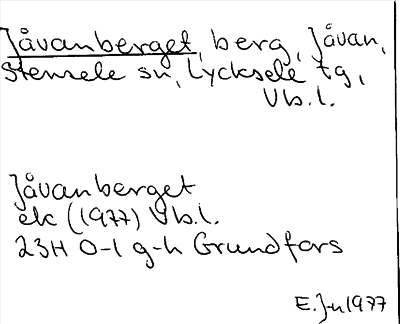 Jåvanberget, berg, Jåvan,
Stensele sn, Lycksele tg,
Vb.l.
Jåvanberget
ek (1977) Vb.l.
23H 0-1 g-h Grundfors
E.J-n 1977